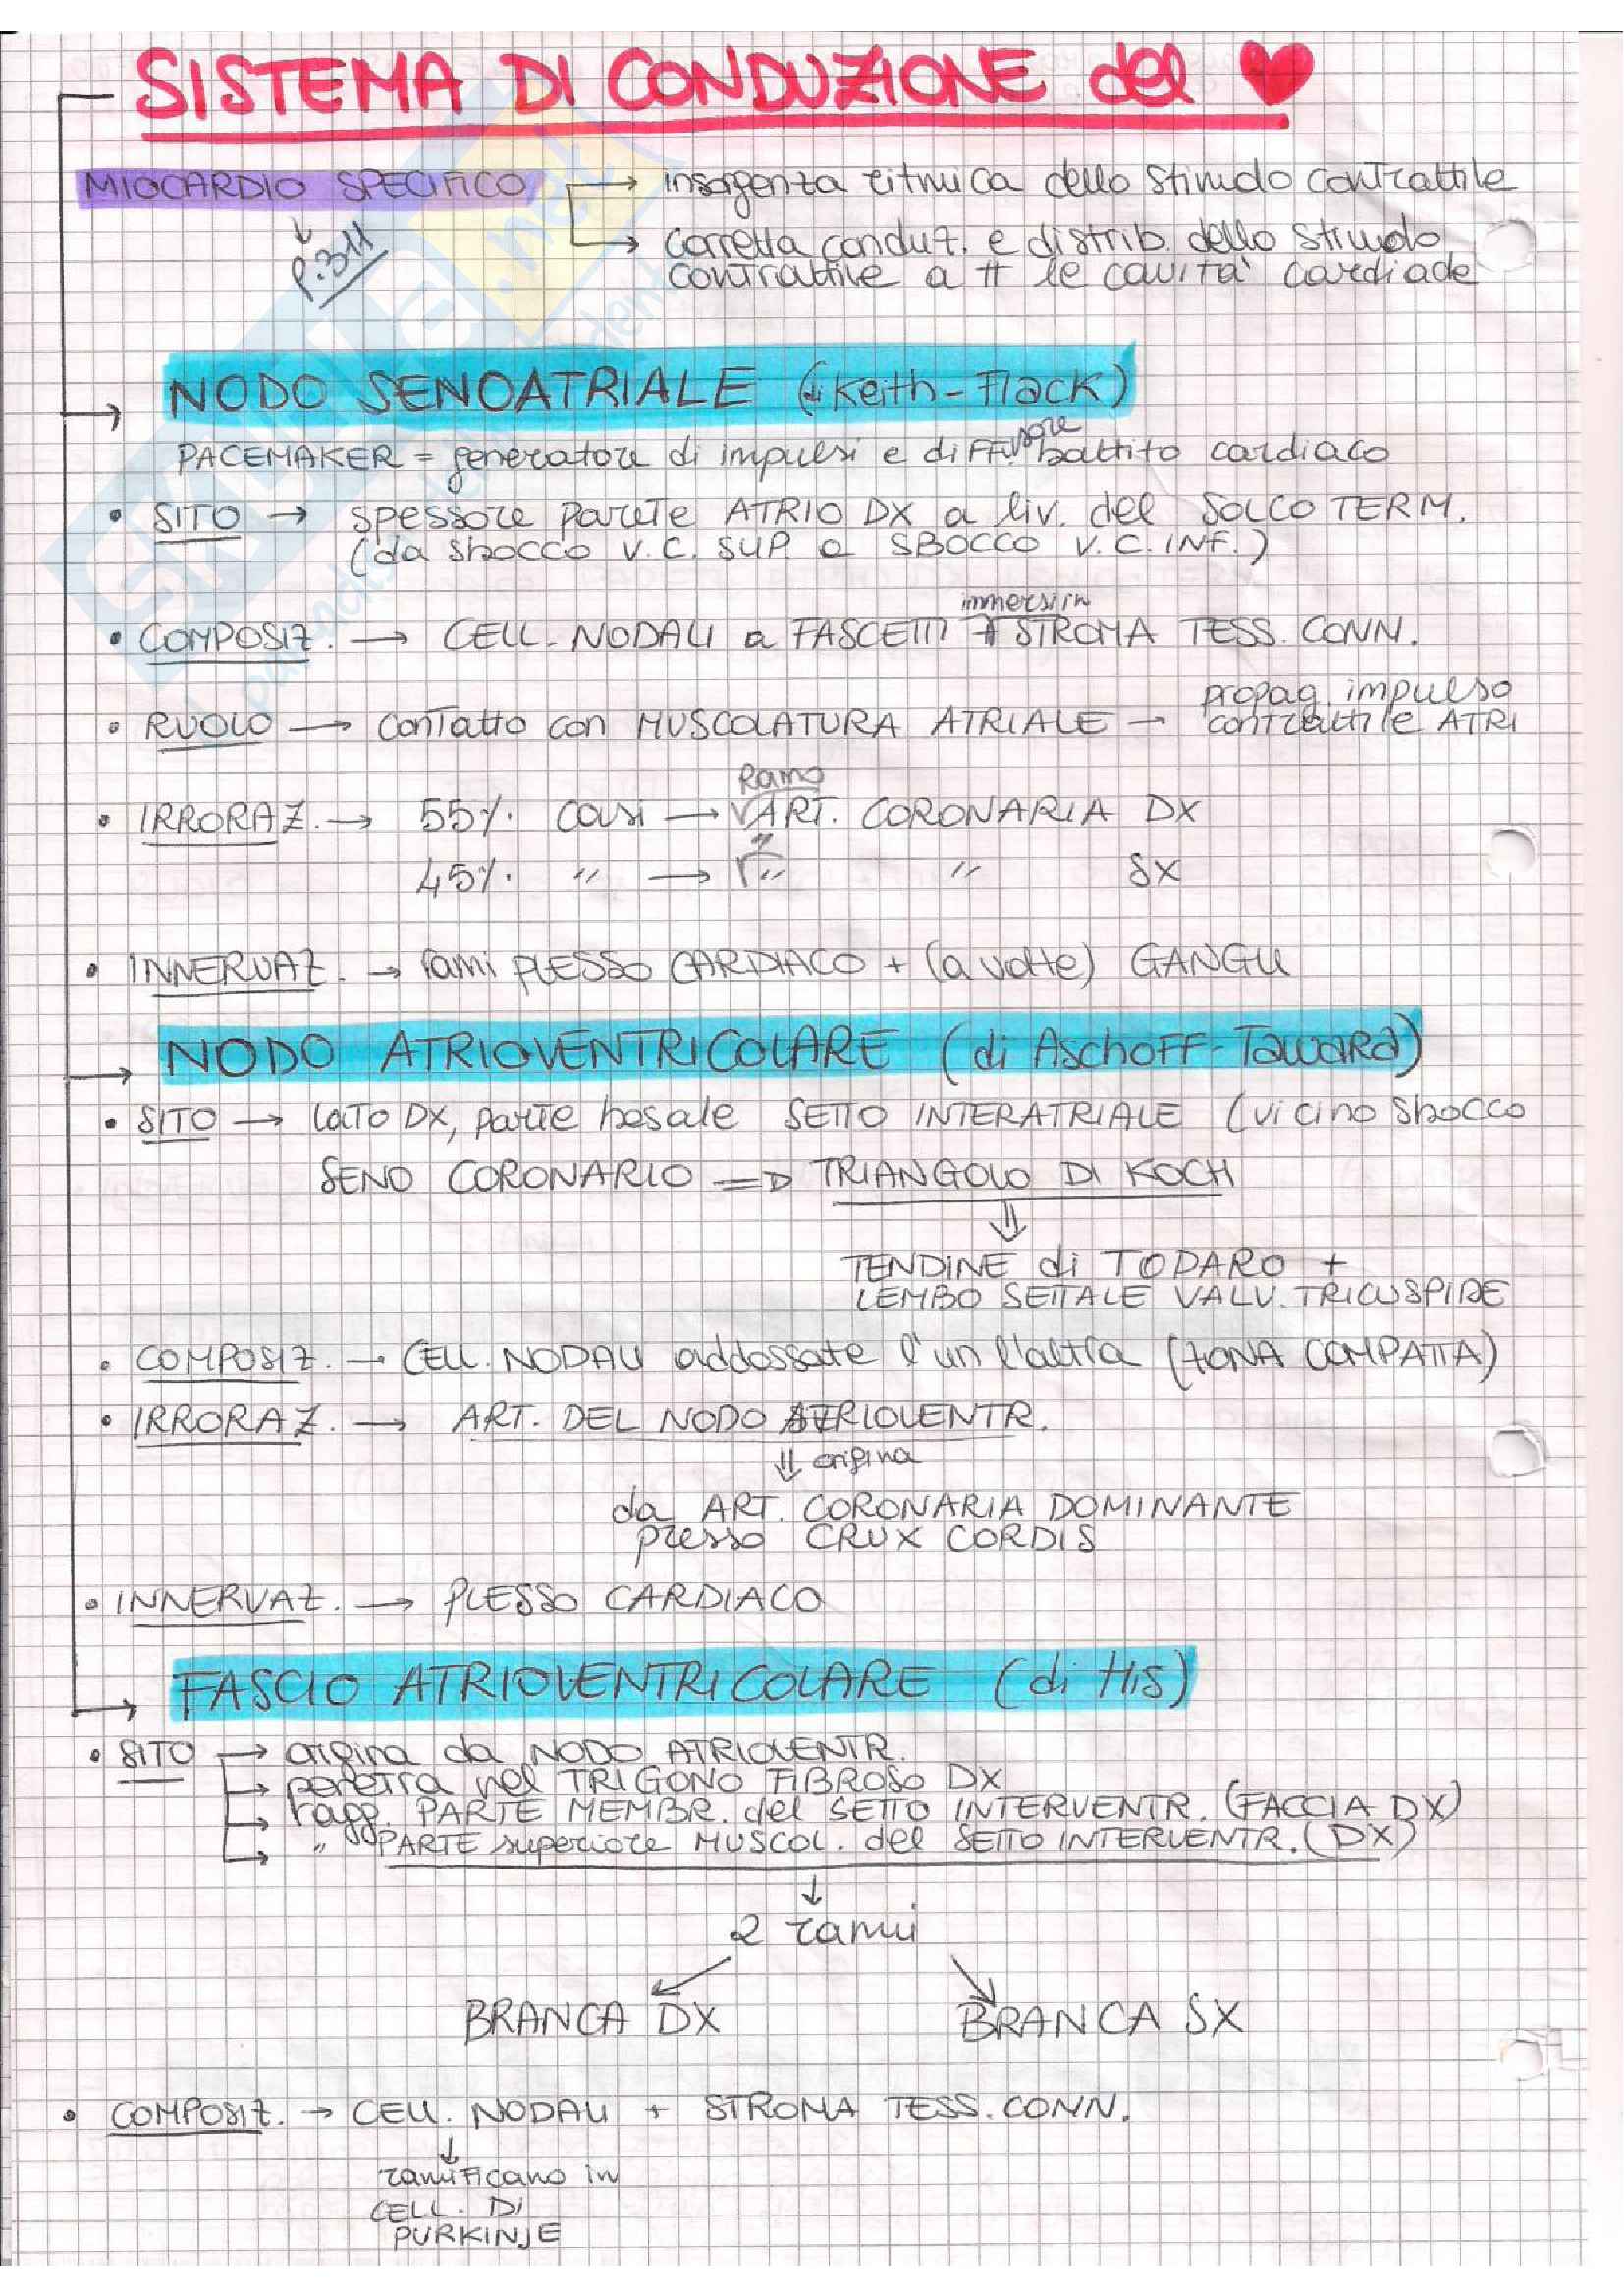 SISTEMA DI CONDUZIONE del ♥
MIOCARDIO SPECIFICO → insorgenza ritmica dello stimolo contrattile
→ corretta conduz. e distrib. dello stimolo
contrattile a tt le cavità cardiache
↓
p.311
NODO SENOATRIALE (di Keith-Flack)
PACEMAKER = generatore di impulsi e diffusore battito cardiaco
• SITO → spessore parete ATRIO DX a liv. del SOLCO TERM.
(da sbocco V.C. SUP a SBOCCO V.C. INF.)
• COMPOSIZ. → CELL. NODALI a FASCETTI immersi in STROMA TESS. CONN.
• RUOLO → contatto con MUSCOLATURA ATRIALE → propag. impulso
contrattile ATRI
• IRRORAZ. → 55% casi → Ramo ART. CORONARIA DX
45% " → " " SX
• INNERVAZ. → rami PLESSO CARDIACO + (a volte) GANGLI
NODO ATRIOVENTRICOLARE (di Aschoff-Tawara)
• SITO → lato DX, parte basale SETTO INTERATRIALE (vicino sbocco
SENO CORONARIO ⇒ TRIANGOLO DI KOCH
⇓
TENDINE di TODARO +
LEMBO SETTALE VALV. TRICUSPIDE
• COMPOSIZ. → CELL. NODALI addossate l'un l'altra (ZONA COMPATTA)
• IRRORAZ. → ART. DEL NODO ATRIOVENTR.
⇓ origina
da ART. CORONARIA DOMINANTE
presso CRUX CORDIS
• INNERVAZ. → PLESSO CARDIACO
FASCIO ATRIOVENTRICOLARE (di His)
• SITO → origina da NODO ATRIOVENTR.
→ penetra nel TRIGONO FIBROSO DX
→ ragg. PARTE MEMBR. del SETTO INTERVENTR. (FACCIA DX)
→ " PARTE superiore MUSCOL. del SETTO INTERVENTR. (DX)
↓
2 rami
BRANCA DX BRANCA SX
• COMPOSIZ. → CELL. NODALI + STROMA TESS. CONN.
↓
ramificano in
CELL. DI
PURKINJE